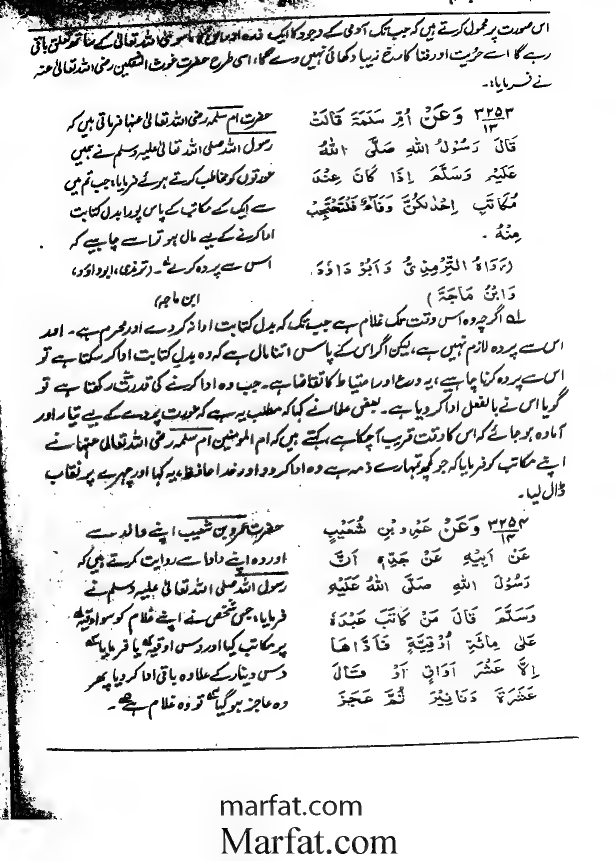 اس صورت پر محمول کرتے ہیں کہ جب تک آدمی کے وجود کا ایک ذرہ اور ماسوی اللہ تعالیٰ کے ساتھ تعلق باقی
رہے گا اسے حریت اور فنا کا رخ زیبا دکھائی نہیں دے گا، اسی طرح حضرت غوث الثقلین رضی اللہ تعالیٰ عنہ
نے فرمایا:۔
۳۲۵۳ وَعَنْ اُمِّ سَلَمَةَ قَالَتْ
۱۳
قَالَ رَسُوْلُ اللهِ صَلَّى اللهُ
عَلَيْهِ وَسَلَّمَ اِذَا كَانَ عِنْدَ
مُكَاتَبِ اِحْدٰىكُنَّ وَفَاءٌ فَلْتَحْتَجِبْ
مِنْهُ ۔
(رَوَاهُ التِّرْمِذِىُّ وَاَبُوْ دَاوٗدَ،
وَابْنُ مَاجَةَ)
حضرت ام سلمہ رضی اللہ تعالیٰ عنہا فرماتی ہیں کہ
رسول اللہ صلی اللہ تعالیٰ علیہ وسلم نے ہمیں
عورتوں کو مخاطب کرتے ہوئے فرمایا: جب تم میں
سے ایک کے مکاتب کے پاس پورا بدل کتابت
ادا کرنے کے لیے مال ہو تو اسے چاہیے کہ
اس سے پردہ کرے لہ۔ (ترمذی، ابوداود،
ابن ماجہ)
لہ اگرچہ وہ اس وقت تک غلام ہے جب تک کہ بدل کتابت ادا نہ کر دے اور محرم ہے۔ اور
اس سے پردہ لازم نہیں ہے، لیکن اگر اس کے پاس اتنا مال ہے کہ وہ بدل کتابت ادا کر سکتا ہے تو
اس سے پردہ کرنا چاہیے، یہ ورع اور احتیاط کا تقاضا ہے۔ جب وہ ادا کرنے کی قدرت رکھتا ہے تو
گویا اس نے بالفعل ادا کر دیا ہے۔ بعض علما نے کہا کہ مطلب یہ ہے کہ عورت پردے کے لیے تیار اور
آمادہ ہو جائے کہ اس کا وقت قریب آچکا ہے، کہتے ہیں کہ ام المومنین ام سلمہ رضی اللہ تعالیٰ عنہا نے
اپنے مکاتب کو فرمایا کہ جو کچھ تمہارے ذمہ ہے وہ ادا کر دو اور خدا حافظ، یہ کہا اور چہرے پر نقاب
ڈال لیا۔
۳۲۵۴ وَعَنْ عَمْرِو بْنِ شُعَيْبٍ
۱۴
عَنْ اَبِيْهِ عَنْ جَدِّهٖ اَنَّ
رَسُوْلَ اللهِ صَلَّى اللهُ عَلَيْهِ
وَسَلَّمَ قَالَ مَنْ كَاتَبَ عَبْدَهٗ
عَلٰى مِائَةِ اُوْقِيَّةٍ فَاَدَّاهَا
اِلَّا عَشْرَ اَوَاقٍ اَوْ قَالَ
عَشَرَةَ دَنَانِيْرَ ثُمَّ عَجَزَ
حضرت عمرو بن شعیب اپنے والد سے
اور وہ اپنے دادا سے روایت کرتے ہیں کہ
رسول اللہ صلی اللہ تعالیٰ علیہ وسلم نے
فرمایا، جس شخص نے اپنے غلام کو سو اوقیہ
پر مکاتب کیا اور دس اوقیہ یا فرمایا
دس دینار کے علاوہ باقی ادا کر دیا پھر
وہ عاجز ہو گیا تو وہ غلام ہے۔
marfat.com
Marfat.com